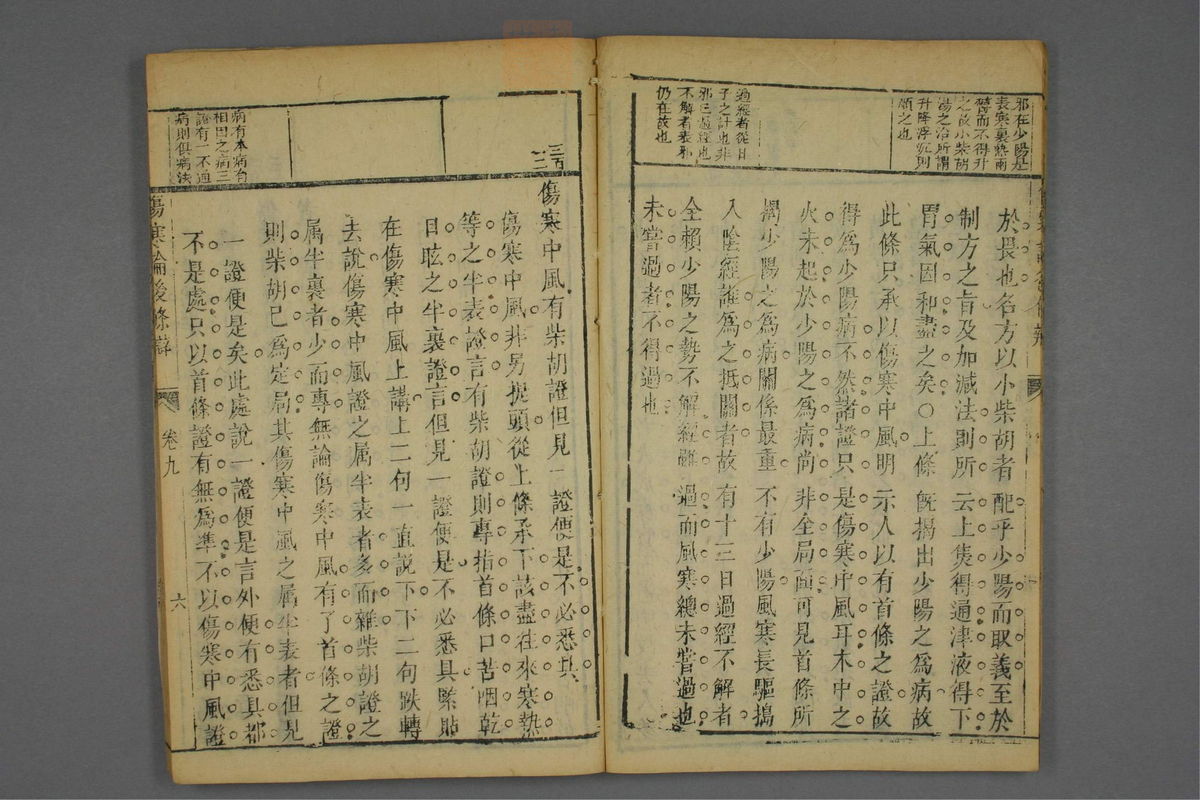 邪在少陽是
表寒裏熱兩
鬱而不得升
之故小柴胡
湯之治所謂
升降浮沉則
順之也
過經者從日
子之計也非
邪已過經也
不解者表邪
仍在故也
於長也名方以小柴胡者配乎少陽而取義至於
制方之旨及加減法則所云上焦得通津液得下
胃氣因和盡之矣○上條既揭出少陽之爲病故
此條只承以傷寒中風明示人以有首條之證故
得爲少陽病不然諸證只是傷寒中風耳木中之
火未起於少陽之爲病尚非全局面可見首條所
揭少陽之爲病關係最重不有少陽風寒長驅搗
入陰經誰爲之抵關者故有十三日過經不解者
全賴少陽之勢不解經雖過而風寒總未嘗過也
未嘗過者不得過也
三百
二
病有本病有
相因之病三
證有一不通
病則俱病法
傷寒中風有柴胡證但見一證便是不必悉具
傷寒中風非另提頭從上條承下該盡往來寒熱
等之半表證言有柴胡證則專指首條口苦咽乾
目眩之半裏證言但見一證便是不必悉具緊貼
在傷寒中風上講上二句一直說下下二句跌轉
去說傷寒中風證之属半表者多而雜柴胡證之
属半裏者少而專無論傷寒中風有了首條之證
則柴胡已爲定局其傷寒中風之属半表者但見
一證便是矣此處說一證便是言外便有悉具都
不是處只以首條證有無爲準不以傷寒中風證
傷寒論後條辯
卷九
六